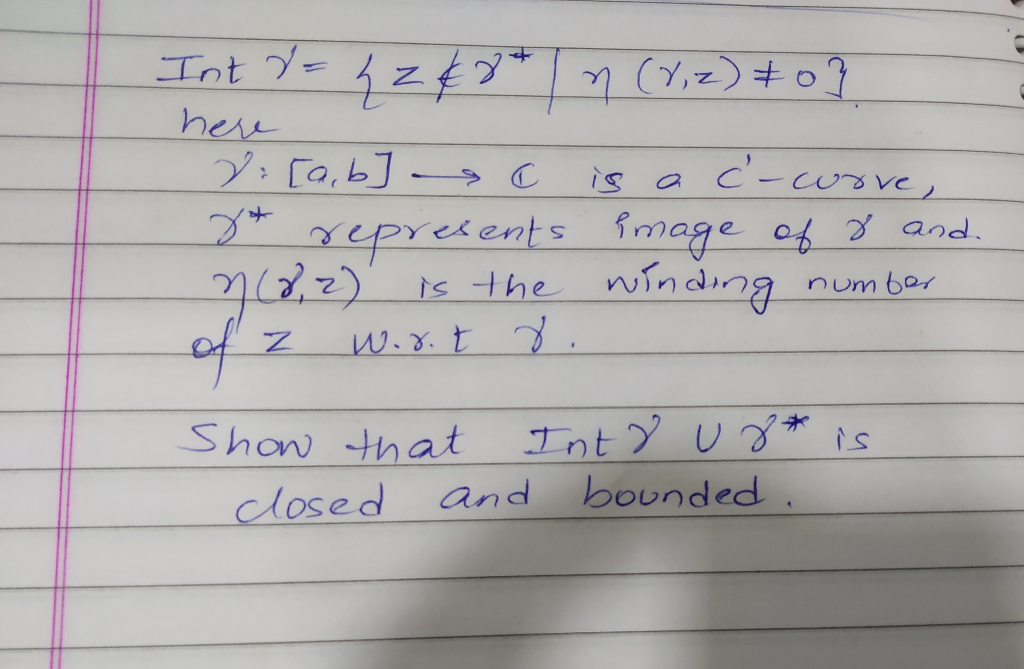 Int γ = {z ∉ γ* | η (γ,z) ≠ 0}.
here
γ: [a,b] → ℂ is a C'-curve,
γ* represents image of γ and.
η(γ,z) is the winding number
of z w.r.t γ.
Show that Int γ ∪ γ* is
closed and bounded.